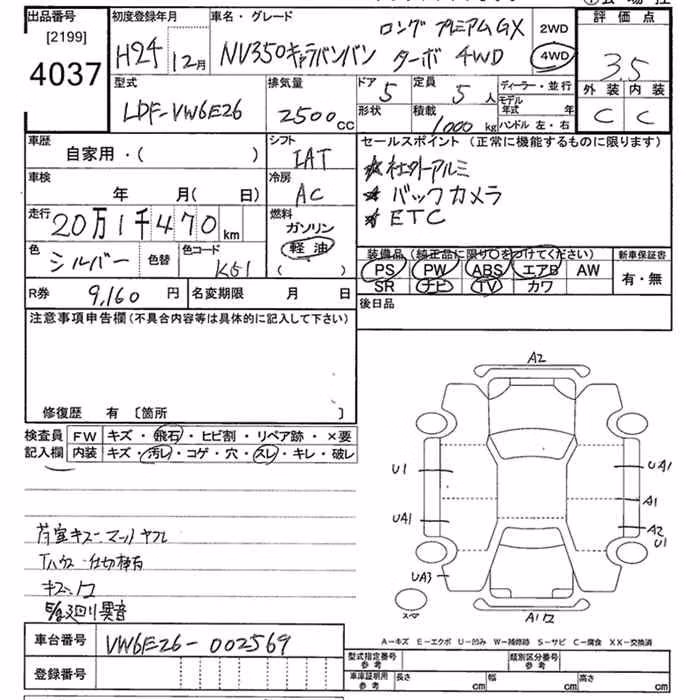 出品番号 初度登録年月 車名・グレード 評価点
[2199]
4037
H24 12月 NV350キャラバンバン ロングプレミアムGX ターボ 4WD 2WD 4WD 3.5
外装 内装
C C
型式 排気量 ドア 定員 ディーラー・並行
LDF-VW6E26 2500cc 5 5人 モデル年式 年
形状 積載 1000kg ハンドル 左・右
車歴 シフト セールスポイント(正常に機能するものに限ります)
自家用・( ) IAT
★社外アルミ
★バックカメラ
★ETC
車検 冷房
年 月( 日) AC
走行 燃料
20万1千470km ガソリン
軽油
( )
色 シルバー 色替 色コード K51
装備品(純正品に限り○をつけてください) 新車保証書
PS PW ABS エアB AW 有・無
SR ナビ TV カワ
R券 9,160円 名変期限 月 日 後日品
注意事項申告欄(不具合内容等は具体的に記入して下さい)
修復歴 有 〔箇所 〕
検査員 FW キズ・飛石・ヒビ割・リペア跡・×要
記入欄 内装 キズ・汚レ・コゲ・穴・スレ・キレ・破レ
荷室キズー マットヤブレ
Tハウス・仕切棒有
A2
U1
UA1
UA3
UA1
A1
A2
U1
スペア
A1ワ
A-キズ E-エクボ U-凹み W-補修跡 S-サビ C-腐食 XX-交換済
車台番号 VW6E26-002569
登録番号
型式指定番号 参考 類別区分番号 参考
車庫証明用 参考 長さ cm 幅 cm 高さ cm